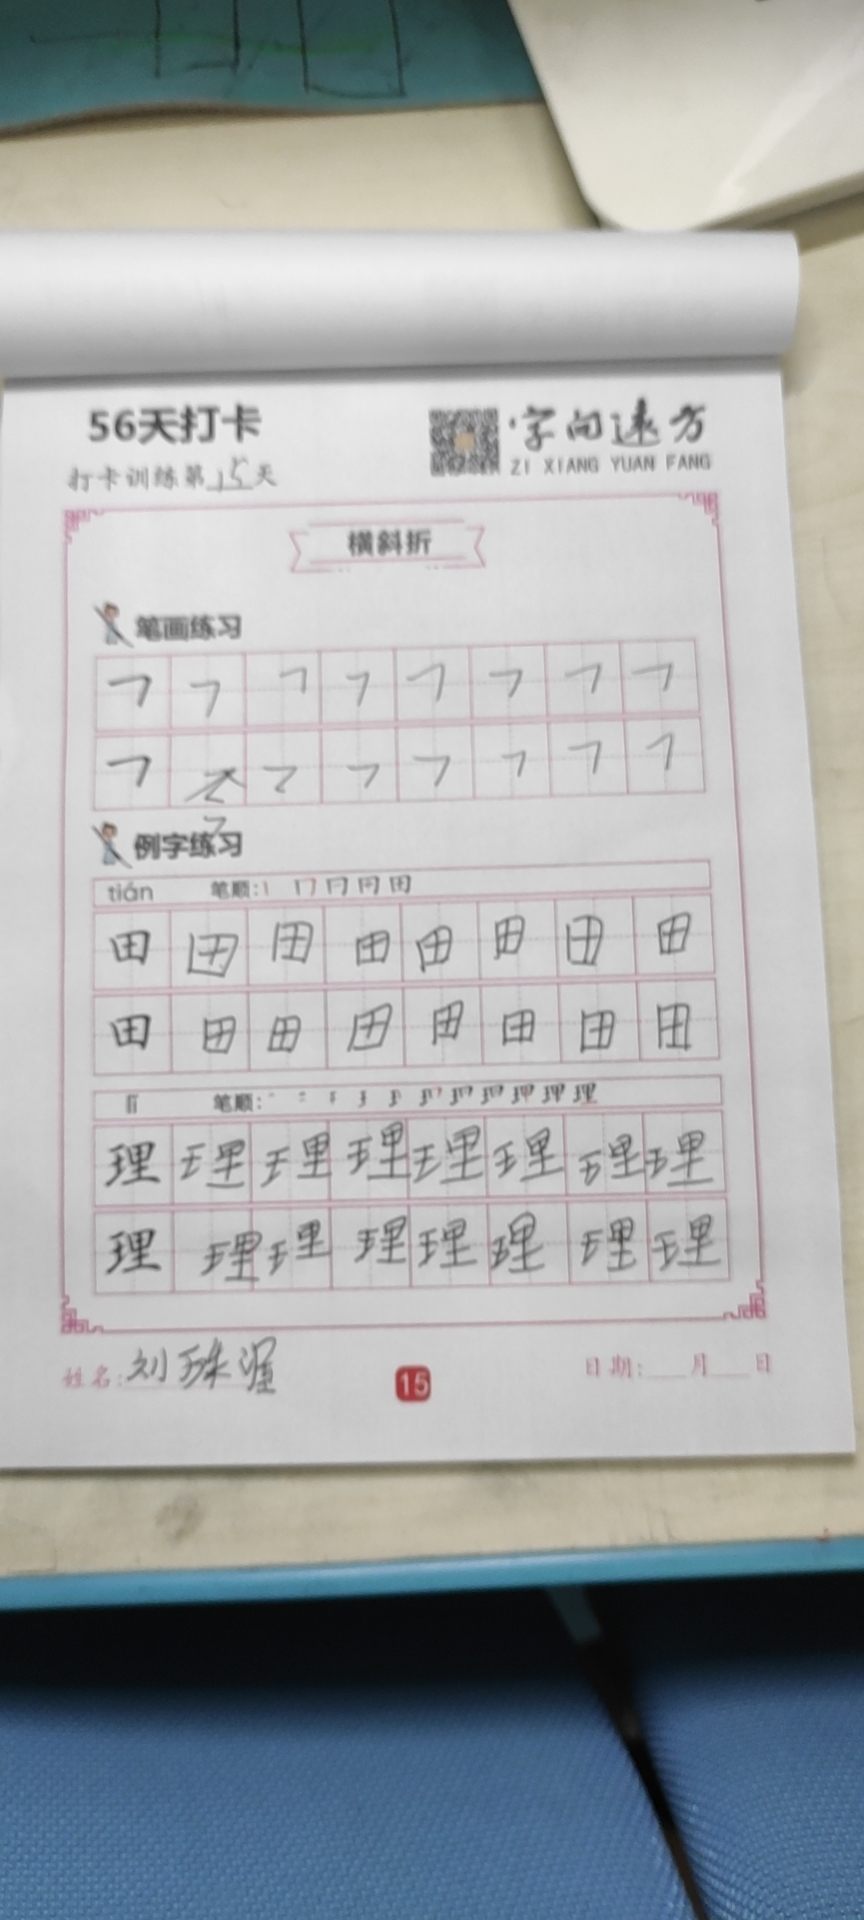 56天打卡
字向远方
打卡训练第15天
ZI XIANG YUAN FANG
横斜折
笔画练习
例字练习
tián 笔顺:
田 田 田 田 田 田 田 田
田 田 田 田 田 田 田 田
lǐ 笔顺:
理 理 理 理 理 理 理 理
理 理 理 理 理 理 理 理
姓名:刘珠渥
15
日期:___月___日